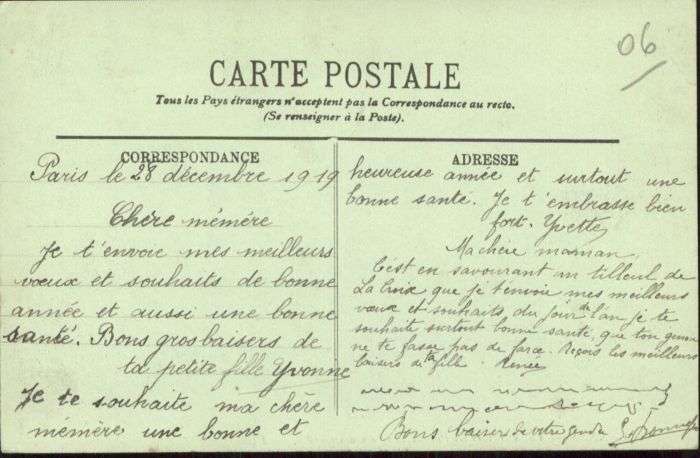 06
CARTE POSTALE
Tous les Pays étrangers n'acceptent pas la Correspondance au recto.
(Se renseigner à la Poste).
CORRESPONDANCE
Paris le 28 décembre 1919
Chère mémère
Je t'envoie mes meilleurs
vœux et souhaits de bonne
année et aussi une bonne
santé. Bons gros baisers de
ta petite fille Yvonne
Je te souhaite ma chère
memère une bonne et
ADRESSE
heureuse année et surtout une
bonne santé. Je t'embrasse bien
fort. Yvette
Ma chère maman,
C'est en savourant un tilleul de
La Croix que je t'envoie mes meilleurs
vœux et souhaits du jour de l'an je te
souhaite surtout bonne santé, que ton
ne te fasse pas de farce. Reçois les meilleurs
baisers de ta fille. Renée
Bons baiser de votre gendre